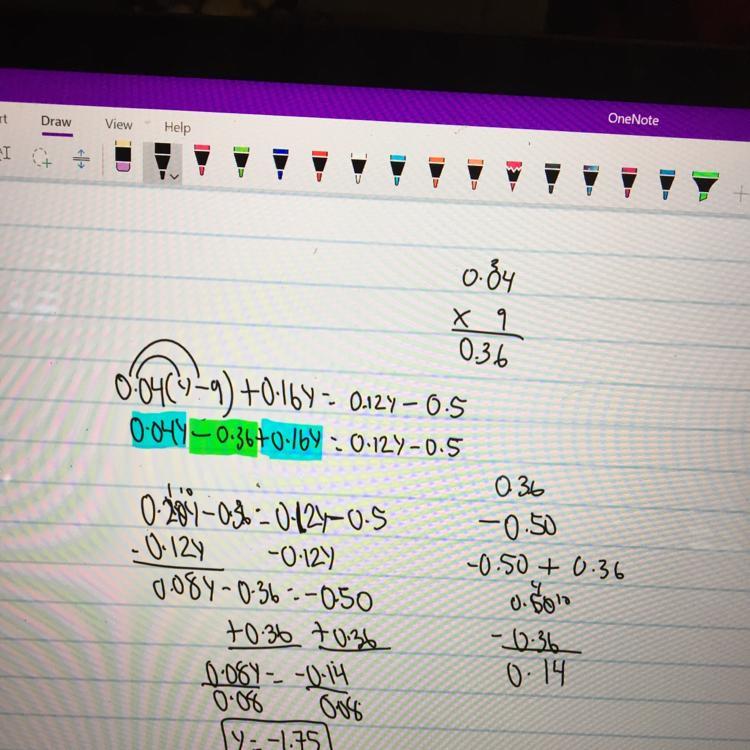 OneNote
rt Draw View Help
0.04
x 9
0.36
0.04(y-9)+0.16y = 0.12y - 0.5
0.04y - 0.36 + 0.16y = 0.12y - 0.5
0.20y - 0.36 = 0.12y - 0.5
- 0.12y -0.12y
0.08y - 0.36 = -0.50
+0.36 +0.36
0.08y = -0.14
0.08 0.08
y = -1.75
0.36
-0.50
-0.50 + 0.36
4 10
0.50
-0.36
0.14